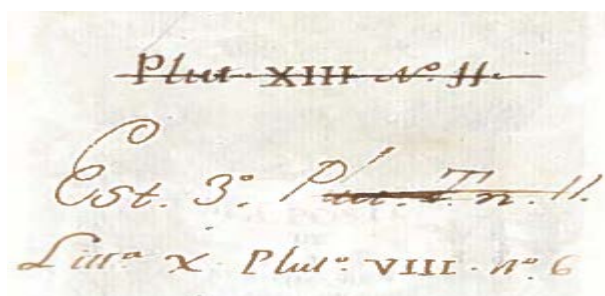 Plut. XIII Nº. 11.
Est. 3º. P n. 11.
Litt.ª X. Plut.º VIII. nº. 6